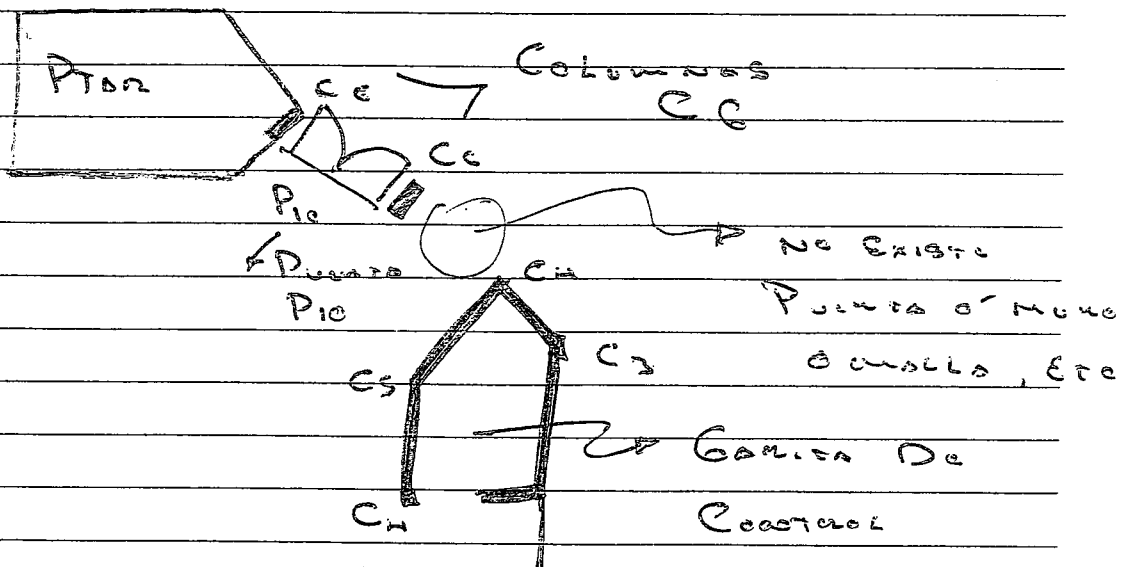 PTAR
COLUMNAS
C6
C6
C6
P10
PUERTA
P10
NO EXISTE
PUERTA O' MURO
O MALLA, ETC
C4
C3
C5
GARITA DE
CONTROL
C4